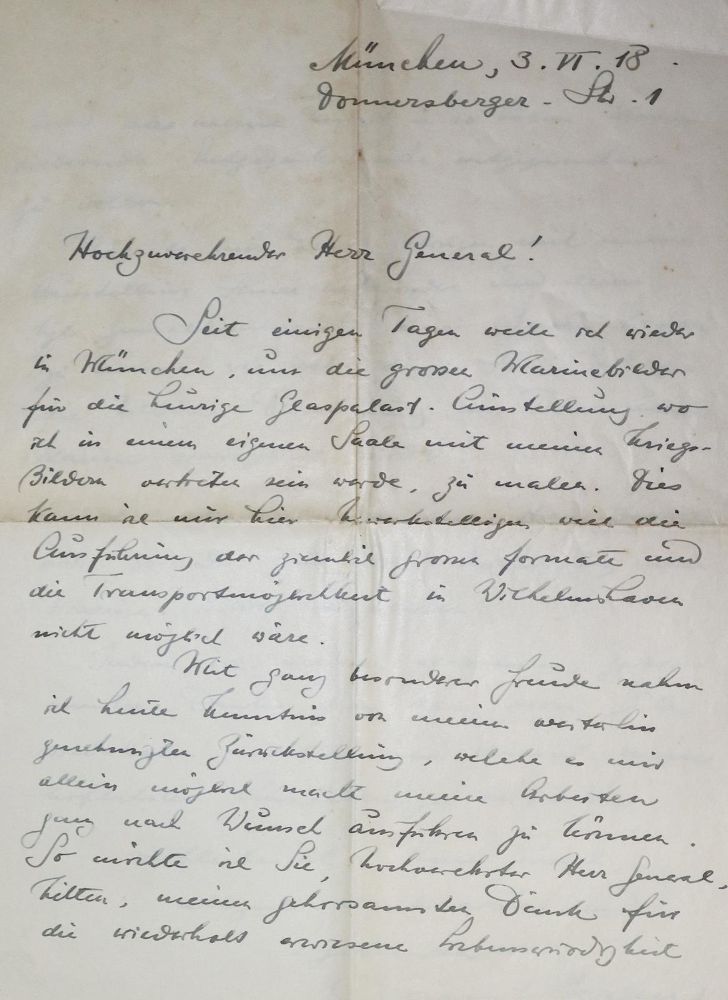 München, 3. VI. 18.
Donnersberger-Str. 1
Hochzuverehrender Herr General!
Seit einigen Tagen weile ich wieder
in München, um die grossen Marinebilder
für die heurige Glaspalast-Ausstellung, wo
ich in einem eigenen Saale mit meinen Kriegs-
Bildern vertreten sein werde, zu malen. Dies
kann ich nur hier bewerkstelligen weil die
Ausführung der ziemlich grossen Formate und
die Transportmöglichkeit in Wilhelmshaven
nicht möglich wäre.
Mit ganz besonderer Freude nahm
ich heute Kenntnis von meiner weiterhin
genehmigten Zurückstellung, welche es mir
allein möglich macht meine Arbeiten
ganz nach Wunsch ausführen zu können.
So möchte ich Sie, hochverehrter Herr General,
bitten, meinen gehorsamsten Dank für
die wiederholt erwiesene Liebenswürdigkeit